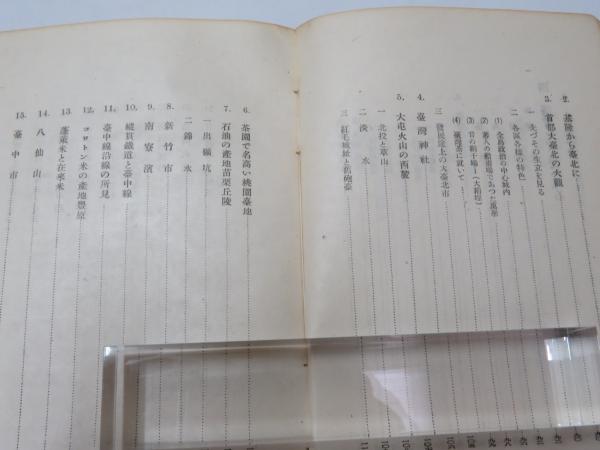 2. 基隆から臺北に
3. 首都大臺北の大觀
一 先づその生立を見る
二 各區各樣の特色
(1) 全島政治の中心城内
(2) 蕃人の船着場であつた萬華
(3) 昔の新十場―(大稻埕)
(4) 臺灣茶に就いて―
三 發展途上の大臺北市
4. 臺灣神社
5. 大屯火山の西麓
一 北投と草山
二 淡水
三 紅毛城址と舊砲臺
6. 茶園で名高い桃園臺地
7. 石油の產地苗栗丘陵
一 出礦坑
二 錦水
8. 新竹市
9. 南寮濱
10. 縱貫鐵道と臺中線
11. 臺中線沿線の所見
12. コロトン米の產地豐原
13. 蓬萊米と在來米
14. 八仙山
15. 臺中市